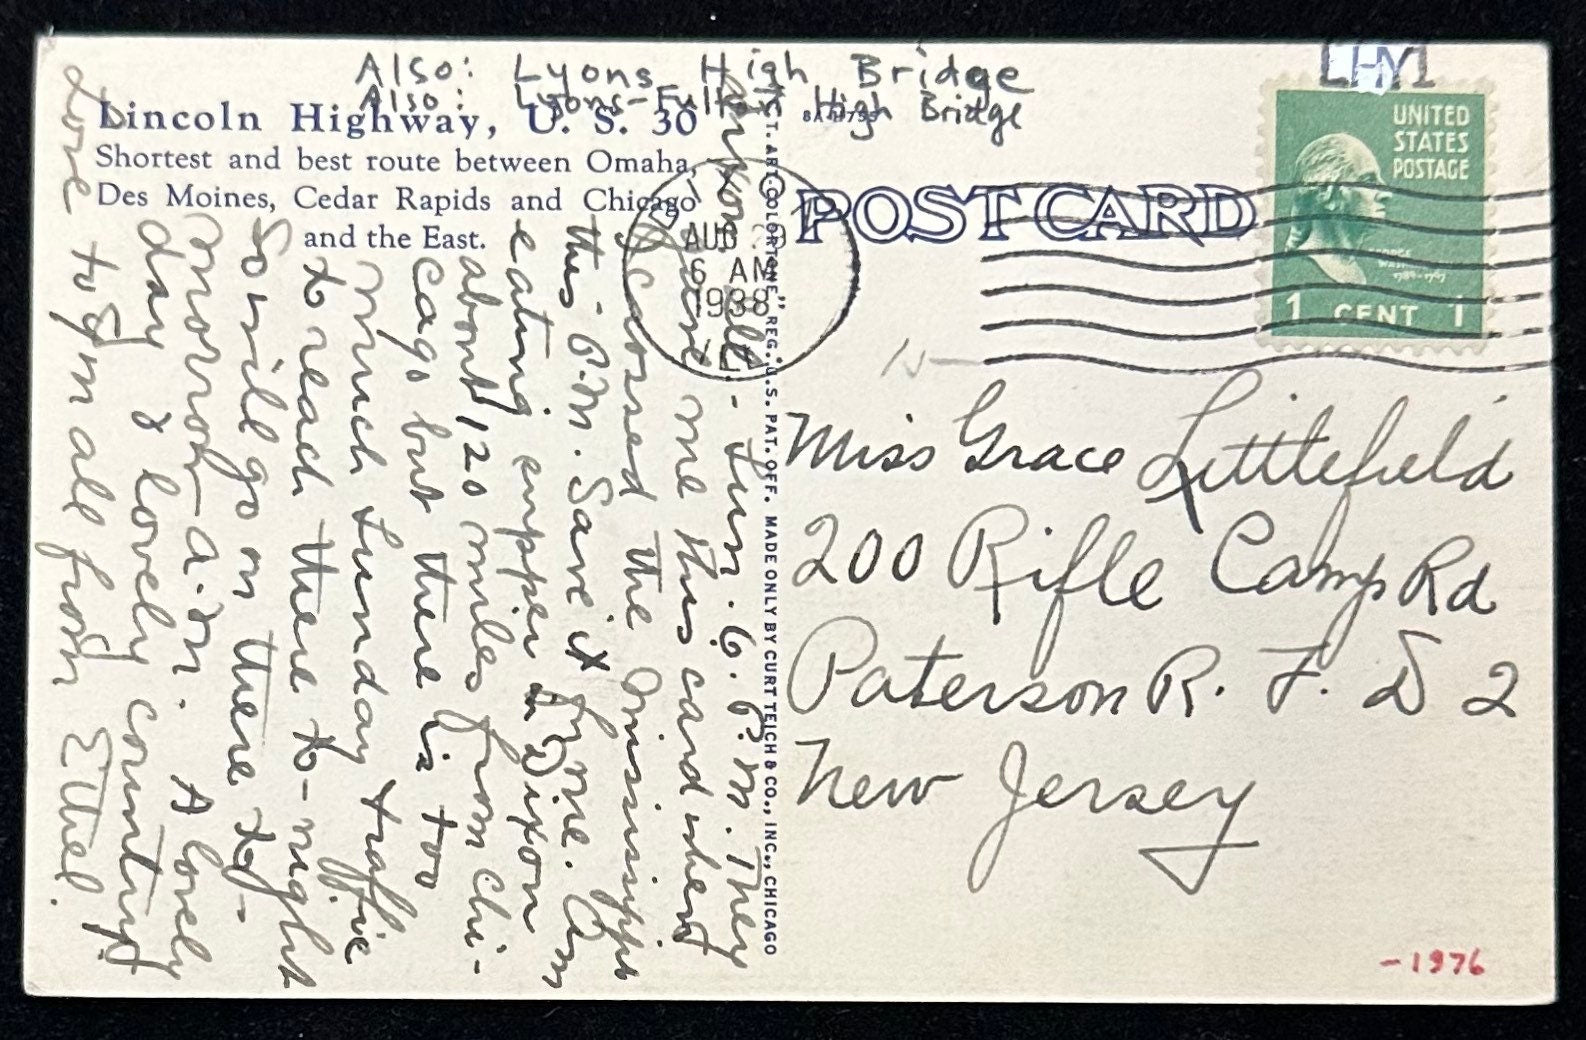 Also: Lyons High Bridge
Also: Lyons-Fulton High Bridge
LHY1
Lincoln Highway, U. S. 30
Shortest and best route between Omaha,
Des Moines, Cedar Rapids and Chicago
and the East.
POST CARD
UNITED
STATES
POSTAGE
GEORGE
WASHINGTON
1 CENT 1
DIXON
AUG
6 AM
1938
ILL
C. T. ART-COLORTONE" REG. U.S. PAT. OFF. MADE ONLY BY CURT TEICH & CO., INC., CHICAGO
Dixon Ill - Sun. 6. P.M. They
gave me this card when
I crossed the Mississippi
this P.M. Save it for me. Am
eating supper in Dixon
about 120 miles from Chi-
cago but there is too
much Sunday traffic
to reach there to-night
so will go on there to-
morrow a.m. A lovely
day & lovely country
Love to you all from Ethel.
Miss Grace Littlefield
200 Rifle Camp Rd
Paterson R. F. D 2
New Jersey
N—
-1976